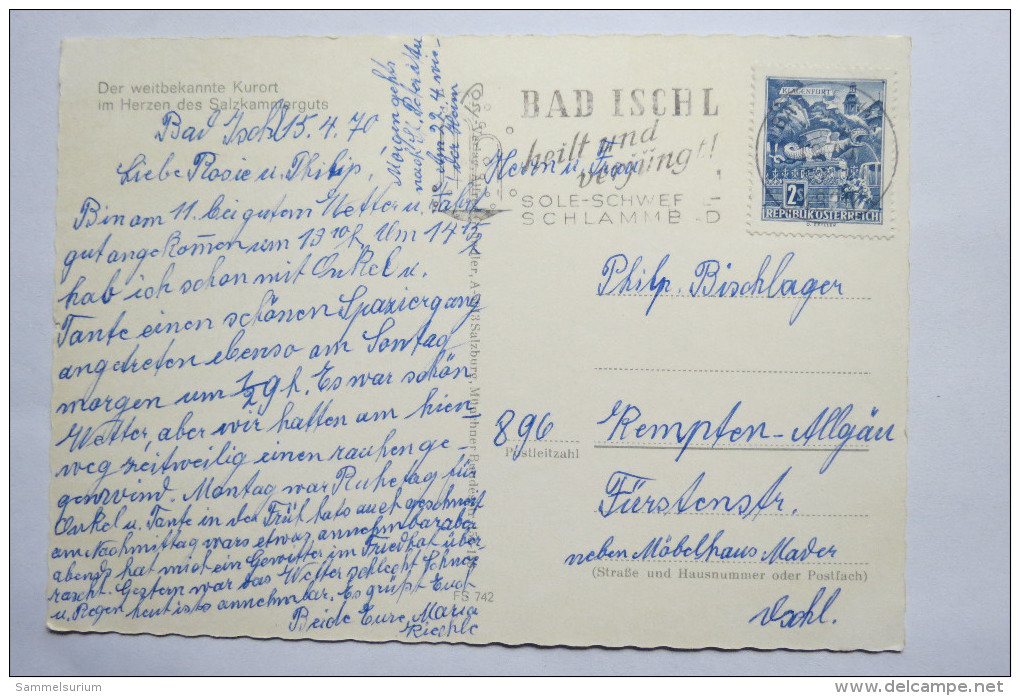 Der weitbekannte Kurort
im Herzen des Salzkammerguts
Bad Ischl 15.4.70
Liebe Rosie u. Philip,
Bin am 11. bei gutem Wetter u. Fahrt
gut angekommen um 13 h. Um 14
hab ich schon mit Onkel u.
Tante einen schönen Spaziergang
angetreten ebenso am Sontag
morgen um 1/2 9 h. Es war schön
Wetter, aber wir hatten am hien,
weg zeitweilig einen rauhen ge-
genwind. Montag war Ruhetag für
Onkel u. Tante in der Früh hats auch geschneit
am Nachmittag wars etwas annehmbar aber
abends hat mich ein Gewitter im Friedhof über,
rascht. Gestern war das Wetter schlecht Schnee
u. Regen heut ists annehmbar. Es grüßt Euch
Beide Eure Maria
Riechle
Morgen gehts
nach St.
22.4. wie-
der heim
A-5013 Salzburg, Münchner
FS 742
BAD ISCHL
heilt und
verjüngt!
SOLE-SCHWEF -
SCHLAMMB D
KLAGENFURT
2 S
REPUBLIK ÖSTERREICH
Herrn u. Frau
Philp. Bischlager
896 Kempten-Allgäu
Postleitzahl
Fürstenstr.
neben Möbelhaus Mader
(Straße und Hausnummer oder Postfach)
Dschl.
Sammelsurium
delcampe.net